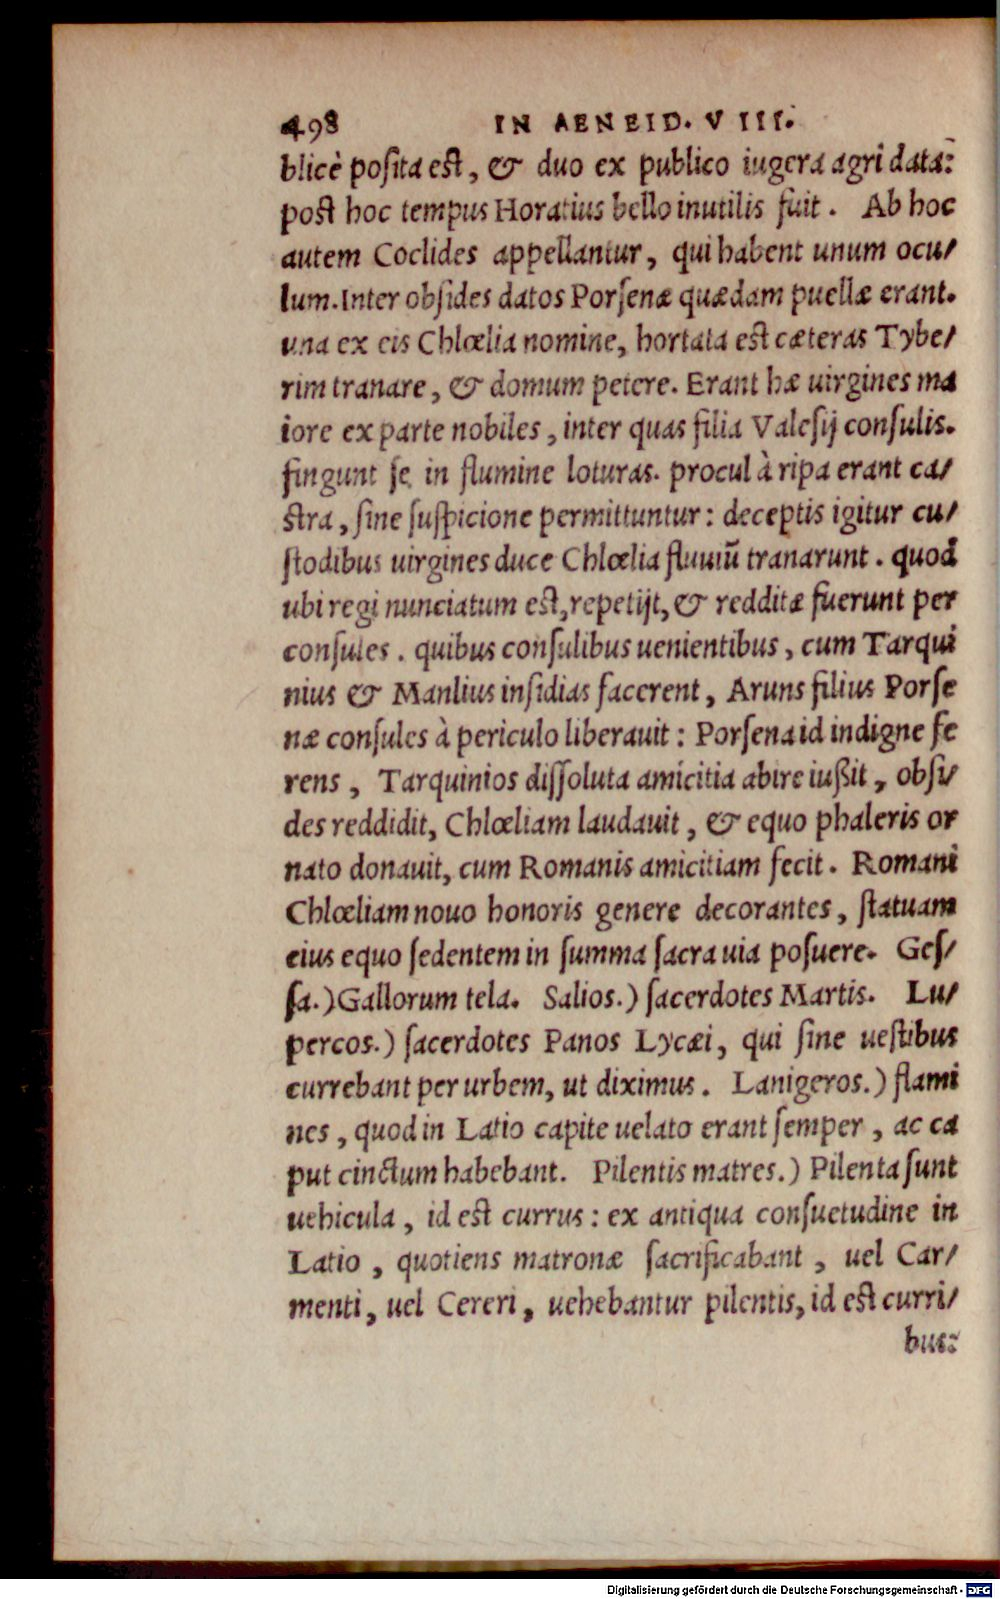 498 IN AENEID. VIII.
blicè posita est, & duo ex publico iugera agri data:
post hoc tempus Horatius bello inutilis fuit. Ab hoc
autem Coclides appellantur, qui habent unum ocu/
lum. Inter obsides datos Porsenæ quædam puellæ erant.
una ex eis Chlœlia nomine, hortata est cæteras Tybe/
rim tranare, & domum petere. Erant hæ uirgines ma
iore ex parte nobiles, inter quas filia Valesij consulis.
fingunt se in flumine loturas. procul à ripa erant ca/
stra, sine suspicione permittuntur: deceptis igitur cu/
stodibus uirgines duce Chlœlia fluuiũ tranarunt. quod
ubi regi nunciatum est, repetijt, & redditæ fuerunt per
consules. quibus consulibus uenientibus, cum Tarqui
nius & Manlius insidias facerent, Aruns filius Porse
næ consules à periculo liberauit: Porsena id indigne fe
rens, Tarquinios dissoluta amicitia abire iußit, obsi/
des reddidit, Chlœliam laudauit, & equo phaleris or
nato donauit, cum Romanis amicitiam fecit. Romani
Chlœliam nouo honoris genere decorantes, statuam
eius equo sedentem in summa sacra uia posuere. Ges/
sa.) Gallorum tela. Salios.) sacerdotes Martis. Lu/
percos.) sacerdotes Panos Lycæi, qui sine uestibus
currebant per urbem, ut diximus. Lanigeros.) flami
nes, quod in Latio capite uelato erant semper, ac ca
put cinctum habebant. Pilentis matres.) Pilenta sunt
uehicula, id est currus: ex antiqua consuetudine in
Latio, quotiens matronæ sacrificabant, uel Car/
menti, uel Cereri, uehebantur pilentis, id est curri/
bus:
Digitalisierung gefördert durch die Deutsche Forschungsgemeinschaft - DFG